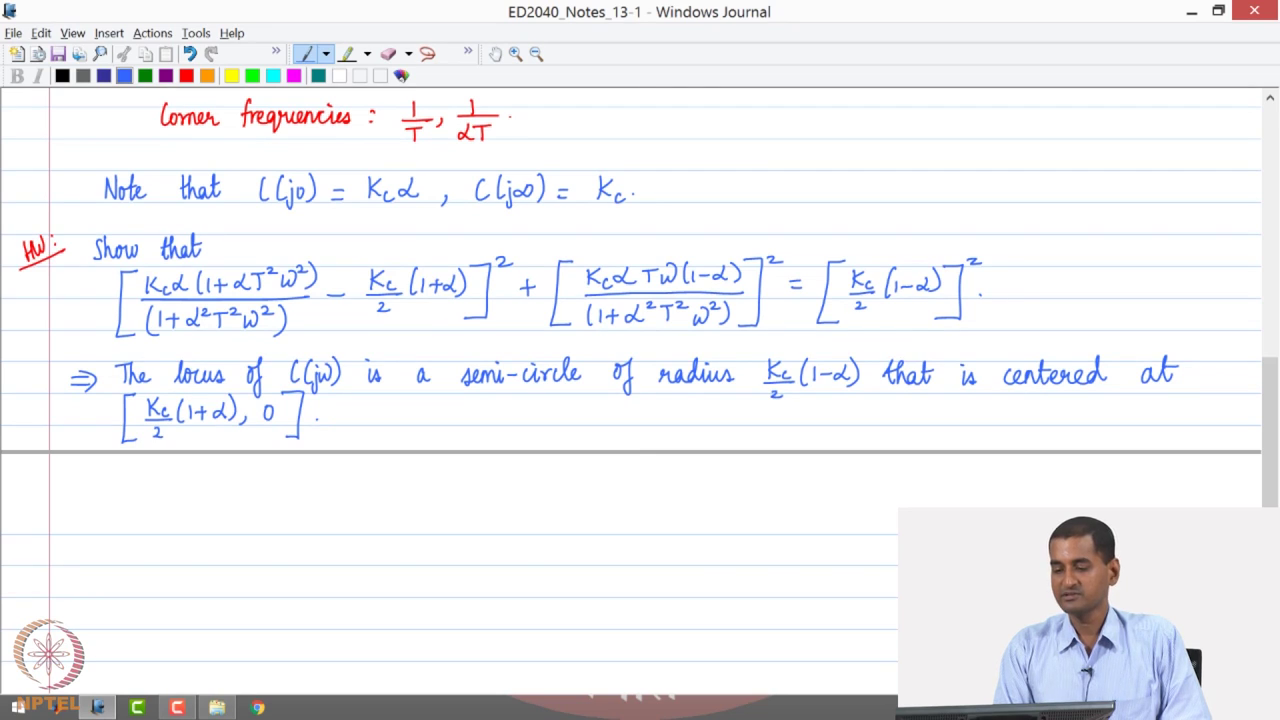 ED2040_Notes_13-1 - Windows Journal
File Edit View Insert Actions Tools Help
Corner frequencies : 1/T, 1/αT.
Note that C(j0) = Kcα, C(j∞) = Kc.
HW: Show that
[Kcα(1+αT²ω²)/(1+α²T²ω²) − Kc/2 (1+α)]² + [KcαTω(1−α)/(1+α²T²ω²)]² = [Kc/2 (1−α)]².
⇒ The locus of C(jω) is a semi-circle of radius Kc/2 (1−α) that is centered at
[Kc/2 (1+α), 0].
NPTEL